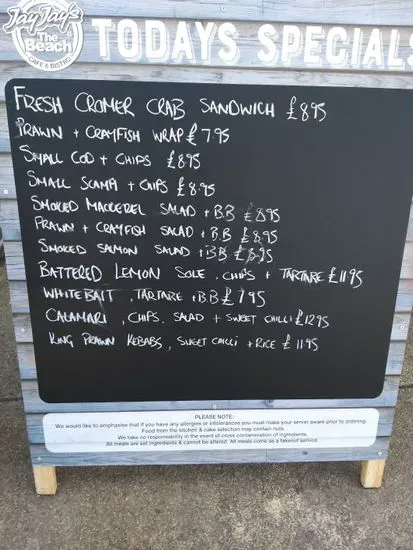 Jay Jay's
The
Beach
CAFE & BISTRO
TODAYS SPECIALS
FRESH CROMER CRAB SANDWICH £8.95
PRAWN + CRAYFISH WRAP £7.95
SMALL COD + CHIPS £8.95
SMALL SCAMPI + CHIPS £8.95
SMOKED MACKEREL SALAD + B.B £8.95
PRAWN + CRAYFISH SALAD + B.B £8.95
SMOKED SALMON SALAD + B.B £8.95
BATTERED LEMON SOLE, CHIPS + TARTARE £11.95
WHITEBAIT, TARTARE + B.B £7.95
CALAMARI, CHIPS, SALAD + SWEET CHILLI £12.95
KING PRAWN KEBABS, SWEET CHILLI + RICE £11.95
PLEASE NOTE:
We would like to emphasise that if you have any allergies or intolerances you must make your server aware prior to ordering.
Food from the kitchen & cake selection may contain nuts.
We take no responsibility in the event of cross contamination of ingredients.
All meals are set ingredients & cannot be altered. All meals come as a takeout service.